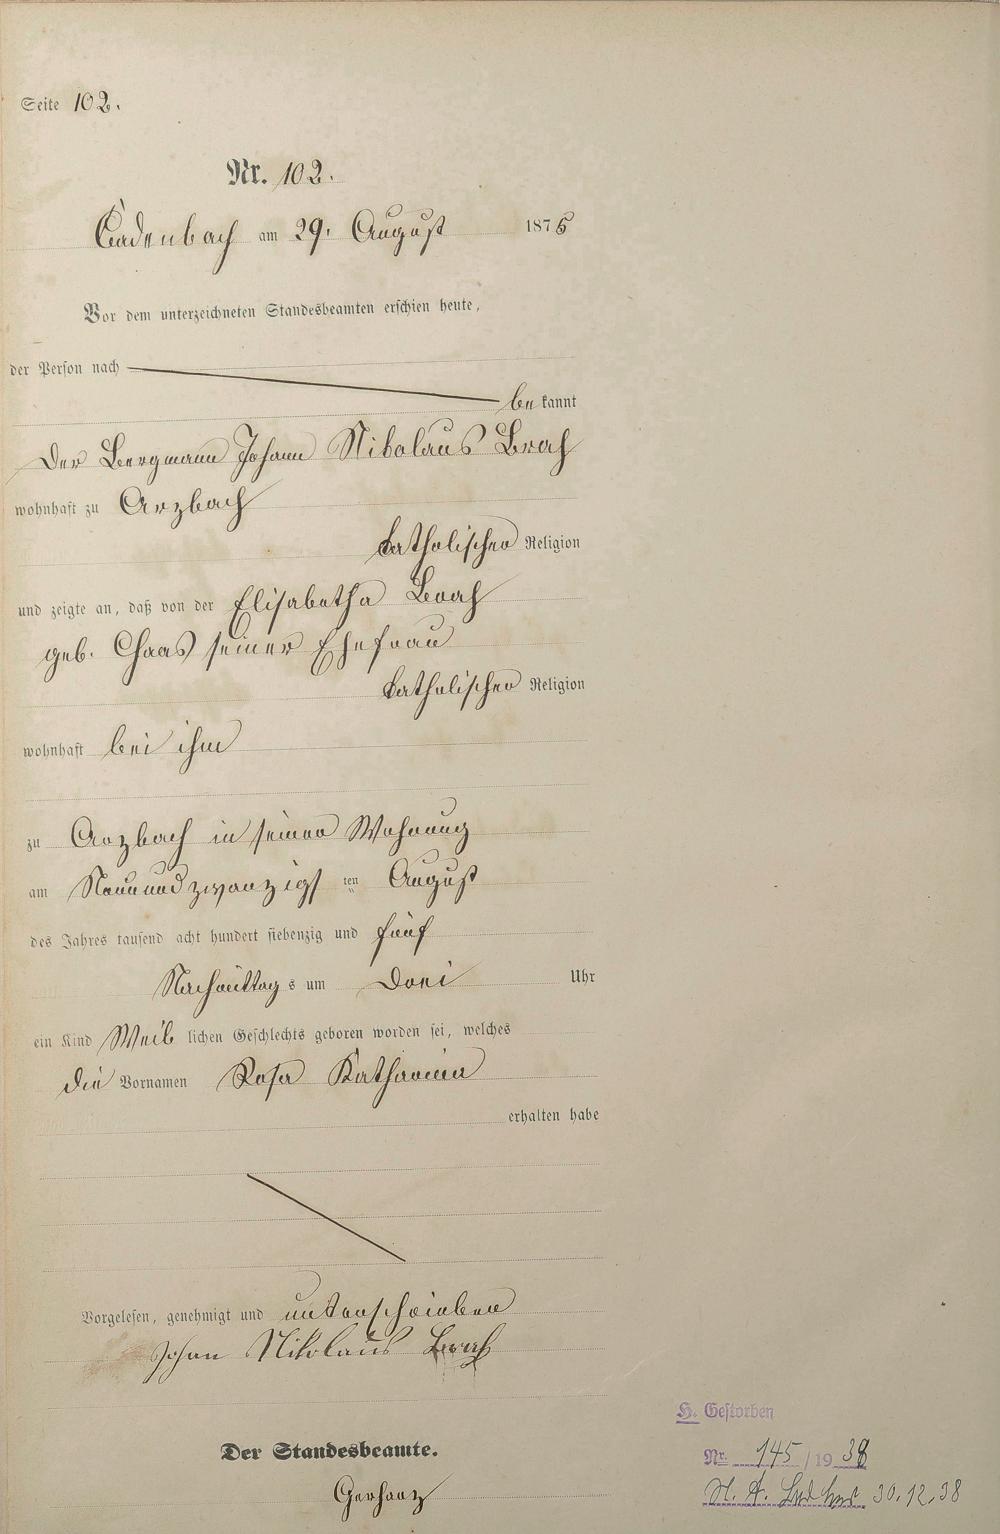 Seite 102.
Nr. 102.
Cadenbach am 29. August 1875
Vor dem unterzeichneten Standesbeamten erschien heute,
der Person nach
be kannt
der Bergmann Johann Nikolaus Brah
wohnhaft zu Arzbach
katholischer Religion
und zeigte an, daß von der Elisabetha Brah
geb. Chaas seiner Ehefrau
katholischer Religion
wohnhaft bei ihm
zu Arzbach in seiner Wohnung
am Neunundzwanzigs ten August
des Jahres tausend acht hundert siebenzig und fünf
Nachmittag s um Drei Uhr
ein Kind Weib lichen Geschlechts geboren worden sei, welches
die Vornamen Rosa Katharina
erhalten habe
Vorgelesen, genehmigt und unterschrieben
Johan Nikolaus Brah
Der Standesbeamte.
Gerharz
H. Gestorben
Nr. 145 / 19 38
St. A. 30.12.38